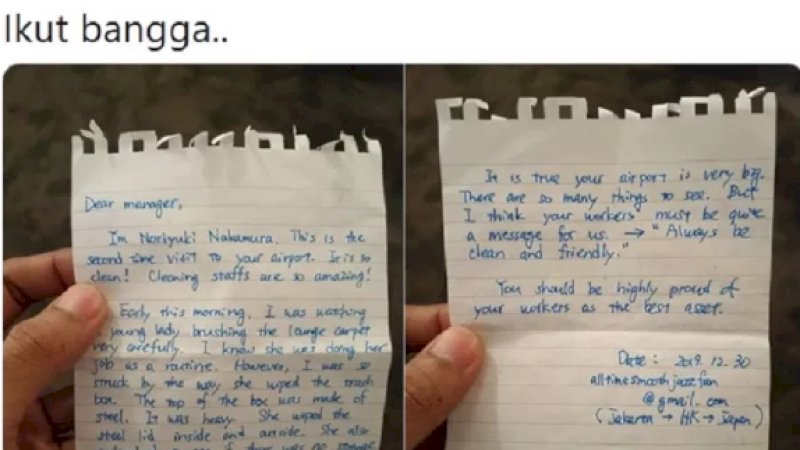 Ikut bangga..
Dear manager,
I'm Noriyuki Nakamura. This is the
second time visit to your airport. It is so
clean! Cleaning staffs are so amazing!
Early this morning, I was watching
a young lady brushing the lounge carpet
very carefully. I know she was doing her
job as a routine. However, I was so
struck by the way she wiped the trash
box. The top of the box was made of
steel. It was heavy. She wiped the
steel lid inside and outside. She also
if there was no
It is true your airport is very big.
There are so many things to see. But
I think your workers must be quite
a message for us. → "Always be
clean and friendly."
You should be highly proud of
your workers as the best asset.
Date: 2019. 12. 30
alltimesmoothjazzfan
@gmail.com
(Jakarta → HK → Japan)